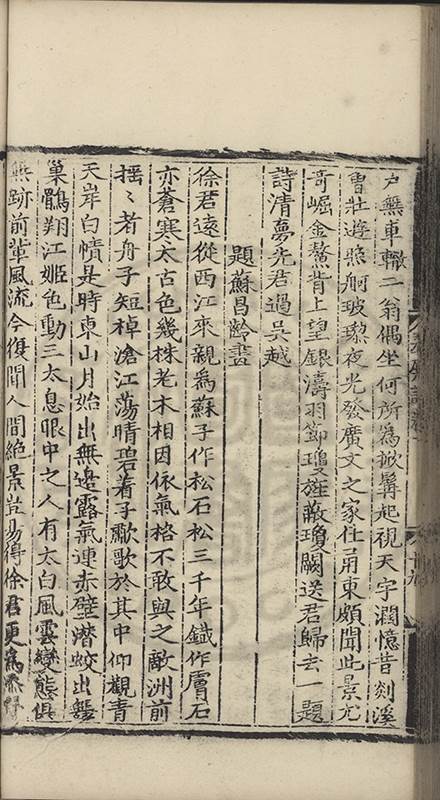 戶無車轍二翁偶坐何所為掀髯起視天宇濶憶昔剡溪
曾壯遊照舸玻瓈夜光發廣文之家住甬東頗聞此景尤
奇崛金鰲背上望銀濤羽節瓊旌蔽瓊闕送君歸去一題
詩清夢先君過吳越
題蘇昌齡畫
徐君遠從西江來親為蘇子作松石松三千年鐵作膚石
亦蒼寒太古色幾株老木相因依氣格不敢與之敵洲前
揺〻者舟子短棹滄江蕩晴碧着子歗歌於其中仰觀青
天岸白幘是時東山月始出無邊露氣連赤壁潛蛟出舞
巢鶻翔江姬色動三太息眼中之人有太白風雲變態俱
無跡前輩風流今復聞人間絶景豈易得徐君更為